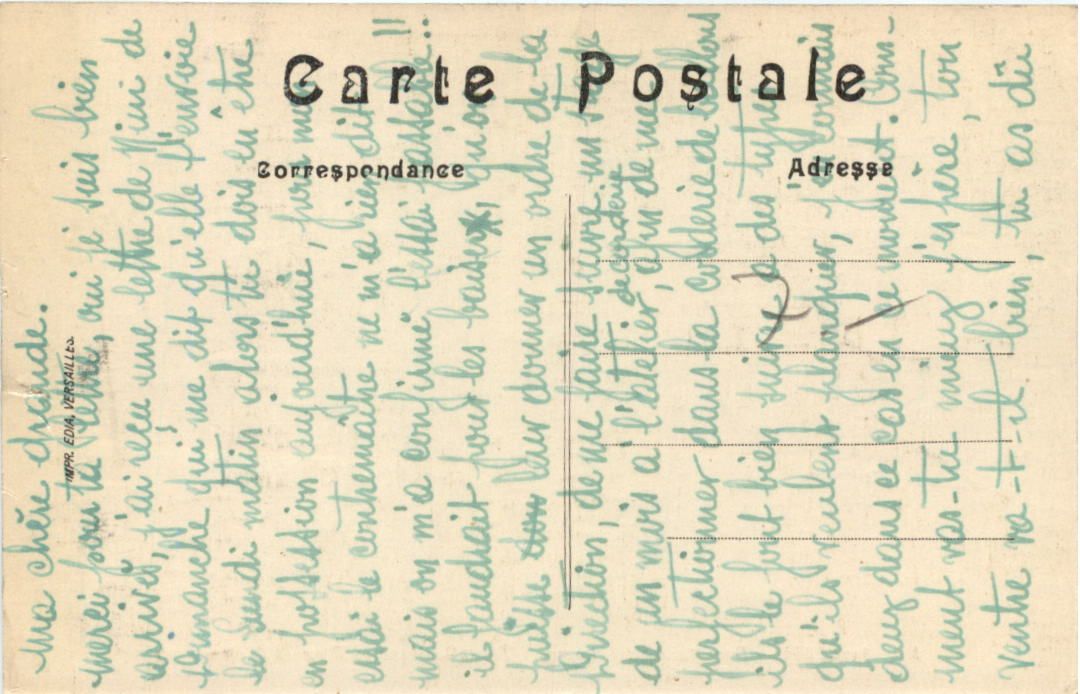 Carte Postale
Correspondance
Adresse
IMPR. EDIA, VERSAILLES.
Ma chère grande.
merci pour ta lettre, oui je suis bien
arrivé, j'ai reçu une lettre de Nini de
Dimanche qui me dit qu'elle t'envoie
le Lundi matin alors tu dois en être
en possession aujourd'hui, pour mon
essai le contremaître ne m'a rien dit
mais on m'a confirmé l'essai passable!!
il faudrait pour les baiser, qu'on
puisse leur donner un ordre de la
Direction, de me faire suivre un
de un mois à l'atelier, afin de me
perfectionner dans la de
ils le font bien suivre a des types
qu'ils veulent planquer, connais
deux dans ce cas en ce moment. Com-
ment vas-tu mieux j'espère, ton
ventre va-t-il bien, tu as dû